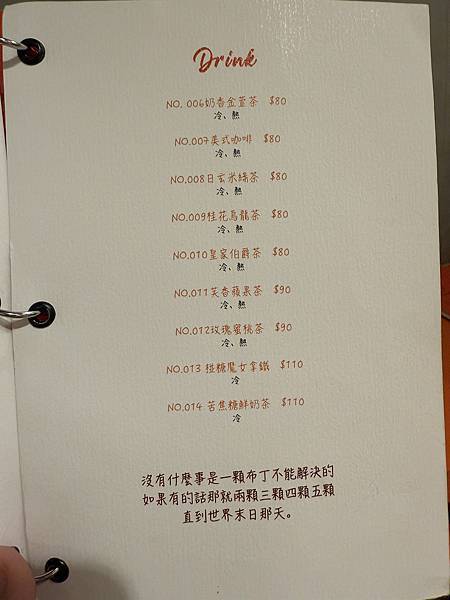 Drink
NO. 006奶香金萱茶 $80
冷、熱
NO.007美式咖啡 $80
冷、熱
NO.008日玄米綠茶 $80
冷、熱
NO.009桂花烏龍茶 $80
冷、熱
NO.010皇家伯爵茶 $80
冷、熱
NO.011芙香蘋果茶 $90
冷、熱
NO.012玫瑰蜜桃茶 $90
冷、熱
NO.013 椪糖魔女拿鐵 $110
冷
NO.014 苦焦糖鮮奶茶 $110
冷
沒有什麼事是一顆布丁不能解決的
如果有的話那就兩顆三顆四顆五顆
直到世界末日那天。